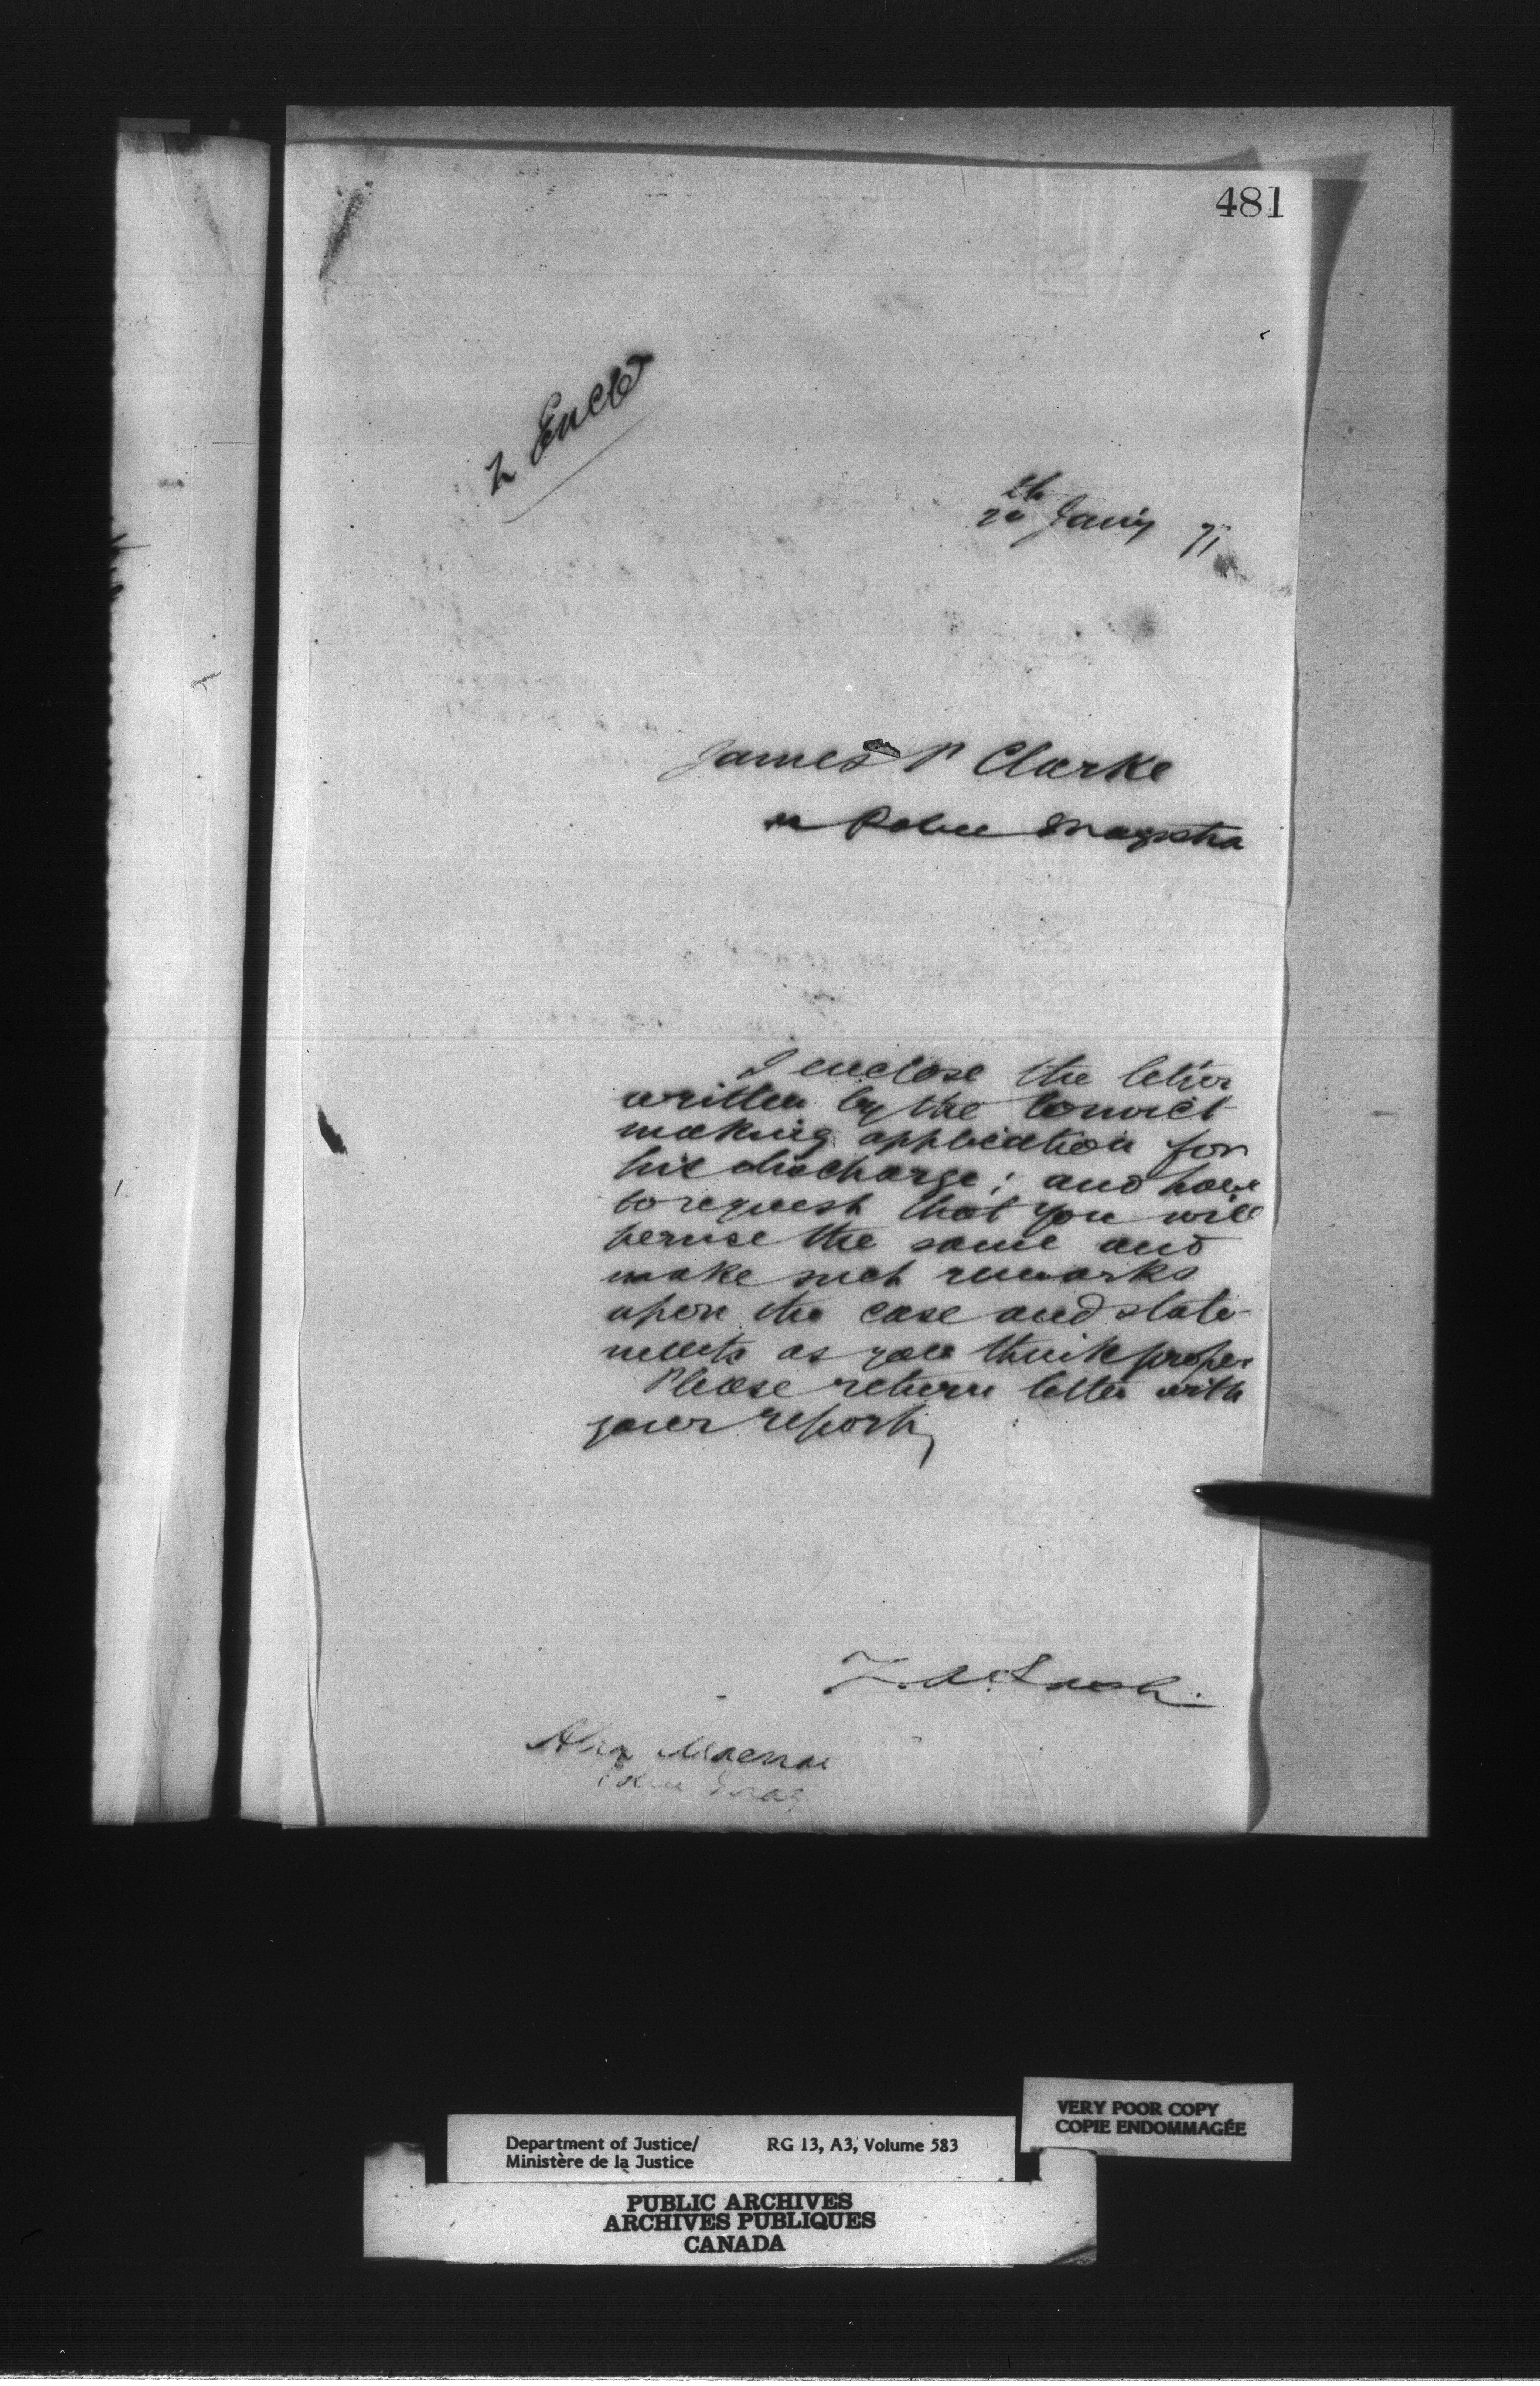 481
2 Encls
20th Jany 71
James P Clarke
Police Magistra
I enclose the letter
written by the Convict
making application for
his discharge; and have
to request that you will
peruse the same and
make such remarks
upon the case and state-
ments as you think proper
Please return letter with
your report,
Z. A. Lash.
Alex Macnab
Police Mag
Department of Justice/
Ministère de la Justice
RG 13, A3, Volume 583
VERY POOR COPY
COPIE ENDOMMAGÉE
PUBLIC ARCHIVES
ARCHIVES PUBLIQUES
CANADA